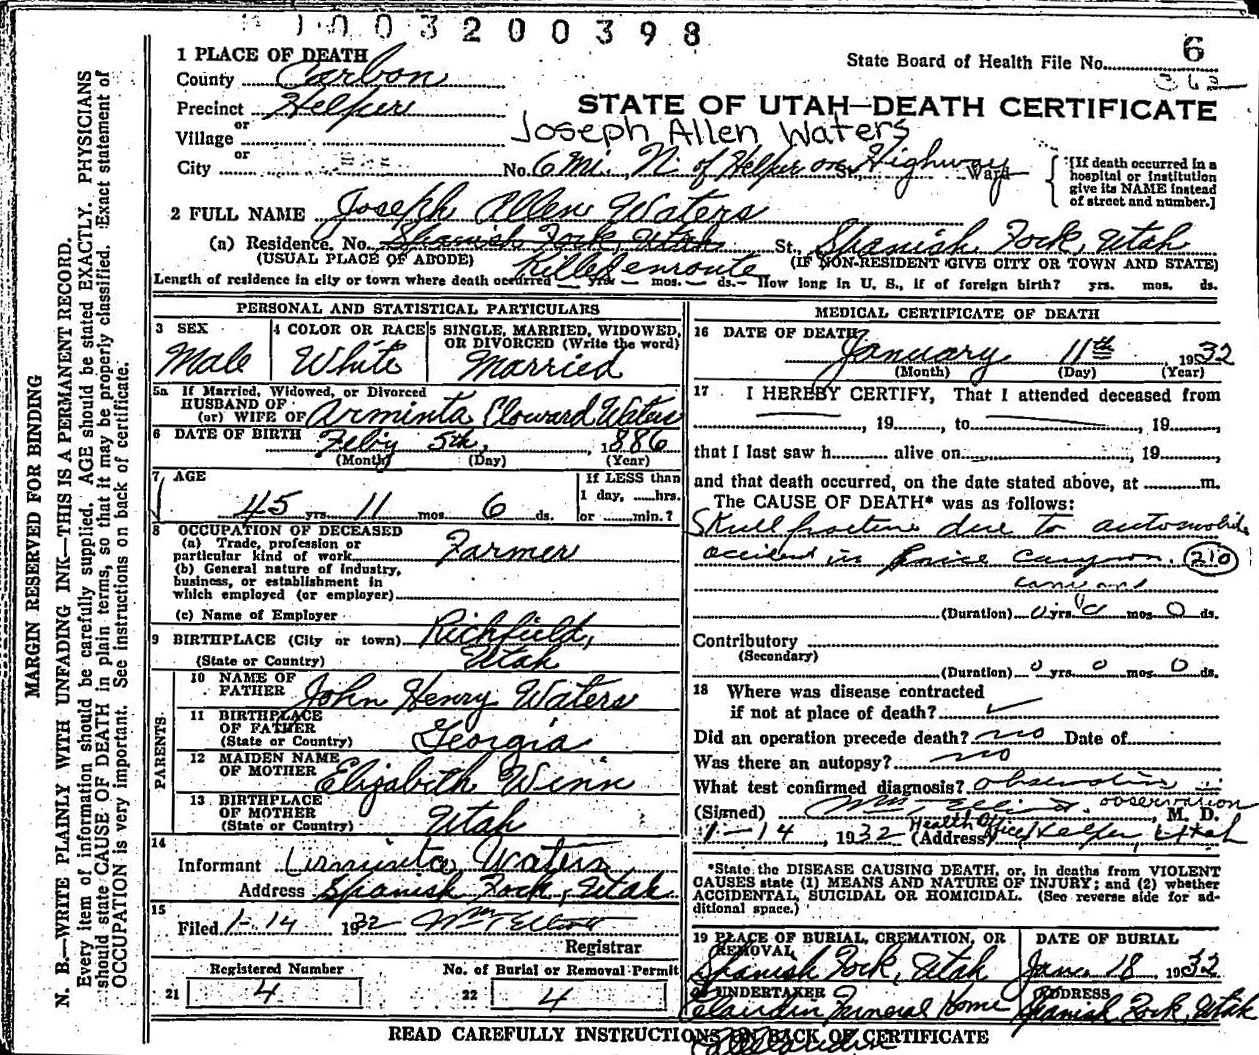 1003200398
1 PLACE OF DEATH
State Board of Health File No. 6
County Carbon
Precinct Helper
STATE OF UTAH—DEATH CERTIFICATE
or
Village
Joseph Allen Waters
or
City No. 6 Mi. N. of Helper on St. Highway Ward
[If death occurred in a hospital or institution give its NAME instead of street and number.]
2 FULL NAME Joseph Allen Waters
(a) Residence. No. Spanish Fork, Utah St., Spanish Fork, Utah
(USUAL PLACE OF ABODE) Killed enroute (IF NON-RESIDENT GIVE CITY OR TOWN AND STATE)
Length of residence in city or town where death occurred — yrs. — mos. — ds. — How long in U. S., if of foreign birth? yrs. mos. ds.
PERSONAL AND STATISTICAL PARTICULARS
3 SEX
Male
4 COLOR OR RACE
White
5 SINGLE, MARRIED, WIDOWED, OR DIVORCED (Write the word)
Married
5a If Married, Widowed, or Divorced
HUSBAND OF
(or) WIFE OF Arminta Cloward Waters
6 DATE OF BIRTH Feby 5th, 1886
(Month) (Day) (Year)
7 AGE
45 yrs. 11 mos. 6 ds.
If LESS than
1 day, ......hrs.
or ......min.?
8 OCCUPATION OF DECEASED
(a) Trade, profession or
particular kind of work Farmer
(b) General nature of industry,
business, or establishment in
which employed (or employer)
(c) Name of Employer
9 BIRTHPLACE (City or town) Richfield,
(State or Country) Utah
PARENTS.
10 NAME OF
FATHER John Henry Waters
11 BIRTHPLACE
OF FATHER
(State or Country) Georgia
12 MAIDEN NAME
OF MOTHER Elizabeth Winn
13 BIRTHPLACE
OF MOTHER
(State or Country) Utah
14
Informant Arminta Waters
Address Spanish Fork, Utah
15
Filed 1-14 1932 Wm Elliott
Registrar
Registered Number
21 4
No. of Burial or Removal Permit
22 4
MEDICAL CERTIFICATE OF DEATH
16 DATE OF DEATH
January 11th 1932
(Month) (Day) (Year)
17 I HEREBY CERTIFY, That I attended deceased from
, 19......, to , 19......,
that I last saw h alive on , 19......,
and that death occurred, on the date stated above, at ......m.
The CAUSE OF DEATH* was as follows:
Skull fracture due to automobile
accident in Price Canyon. 210
(Duration) 0 yrs. 0 mos. 0 ds.
Contributory
(Secondary)
(Duration) 0 yrs. 0 mos. 0 ds.
18 Where was disease contracted
if not at place of death?
Did an operation precede death? no Date of
Was there an autopsy? no
What test confirmed diagnosis? observation
observation
(Signed) Wm Elliott, M. D.
Health Officer
1-14 1932 (Address) Helper, Utah
*State the DISEASE CAUSING DEATH, or, in deaths from VIOLENT
CAUSES state (1) MEANS AND NATURE OF INJURY; and (2) whether
ACCIDENTAL, SUICIDAL OR HOMICIDAL. (See reverse side for ad-
ditional space.)
19 PLACE OF BURIAL, CREMATION, OR
REMOVAL
Spanish Fork, Utah
DATE OF BURIAL
Jan. 18, 1932
UNDERTAKER
Funeral Home
ADDRESS
Spanish Fork, Utah
READ CAREFULLY INSTRUCTIONS ON BACK OF CERTIFICATE
MARGIN RESERVED FOR BINDING
N. B.—WRITE PLAINLY WITH UNFADING INK—THIS IS A PERMANENT RECORD.
Every item of information should be carefully supplied. AGE should be stated EXACTLY. PHYSICIANS
should state CAUSE OF DEATH in plain terms, so that it may be properly classified. Exact statement of
OCCUPATION is very important. See instructions on back of certificate.